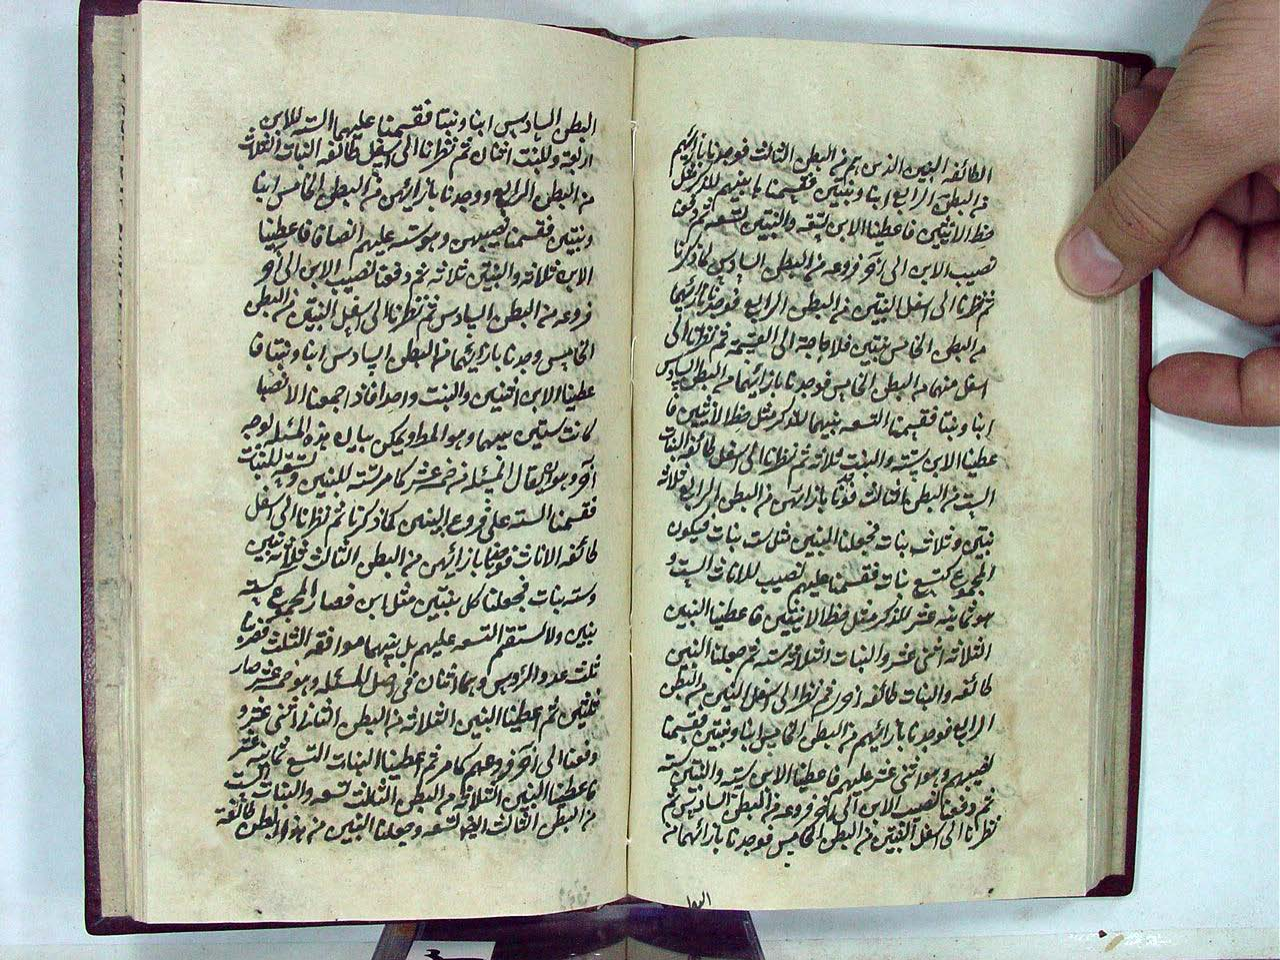 الطائفه البنين الذين هم من البطن الثالث فوجدنا بازائهم
من البطن الرابع ابنا وبنتين فقسمنا ما بينهم للذكر مثل
حظ الانثيين فاعطينا الابن تسعه والبنتين تسعه ثم دفعنا
نصيب الابن الى آخر فروعه من البطن السادس كما ذكرنا
ثم نظرنا الى اسفل البنتين من البطن الرابع فوجدنا بازائهما
من البطن الخامس بنتين فلا حاجة الى القسمة ثم نزلنا الى
اسفل منهما من البطن الخامس فوجدنا بازائهما من البطن السادس
ابنا وبنتا فقسمنا التسعه بينهما للذكر مثل حظ الانثيين فا
عطينا الابن سته والبنت ثلاثه ثم نظرنا الى اسفل طائفه البنات
الست من البطن الثالث فوجدنا بازائهن من البطن الرابع ثلاثه
بنين وثلاث بنات فجعلنا البنين مثل ست بنات فيكون
المجموع كتسع بنات فقسمنا عليهم نصيب للاناث الست و
هو ثمانيه عشر للذكر مثل حظ الانثيين فاعطينا البنين
الثلاثه اثنى عشر والبنات الثلاثه سته ثم جعلنا البنين
طائفه والبنات طائفه اخرى ثم نظرنا الى اسفل البنين من البطن
الرابع فوجدنا بازائهم من البطن الخامس ابنا وبنتين فقسمنا
نصيبهم وهو اثنى عشر عليهم فاعطينا الابن سته والبنتين سته
ثم دفعنا نصيب الابن الى آخر فروعه من البطن السادس ثم
نظرنا الى اسفل البنتين من البطن الخامس فوجدنا بازائهما من
البطن السادس ابنا وبنتا فقسمنا عليهما السته للابن
اربعة وللبنت اثنان ثم نظرنا الى اسفل طائفه البنات الثلاث
من البطن الرابع ووجدنا بازائهن من البطن الخامس ابنا
وبنتين فقسمنا نصيبهن وهو سته عليهم انصافا فاعطينا
الابن ثلاثة والبنتين ثلاثه ثم دفعنا نصيب الابن الى آخر
فروعه من البطن السادس ثم نظرنا الى اسفل البنتين من البطن
الخامس وجدنا بازائهما من البطن السادس ابنا وبنتا فا
عطينا الابن اثنين والبنت واحدا فاذا جمعنا الانصبا
كانت ستين سهما وهو المط ويمكن بيان هذه المسئله لوجه
آخر وهو ان يقال المسئله من خمسه عشر كما مر سته للبنين وتسعه للبنات
فقسمنا السته على فروع البنين كما ذكرنا ثم نظرنا الى اسفل
طائفه الاناث فوجدنا بازائهن من البطن الثالث ثلاثه بنين
وسته بنات فجعلنا كل بنتين مثل ابن فصار المجموع كسته
بنين ولا تستقم التسعه عليهم بل بينهما موافقه الثلث فضربنا
ثلث عدد الرؤس وهما اثنان في اصل المسئله وهو خمسه عشر صار
ثلثين ثم اعطينا البنين الثلاثه من البطن الثانى اثنى عشر و
دفعنا الى آخر فروعهم كما مر ثم اعطينا البنات التسع ثمانيه عشر
فاعطينا البنين الثلاثه من البطن الثالث تسعه والبنات الست
من البطن الثالث ايضا تسعه وجعلنا البنين من هذا البطن طائفة